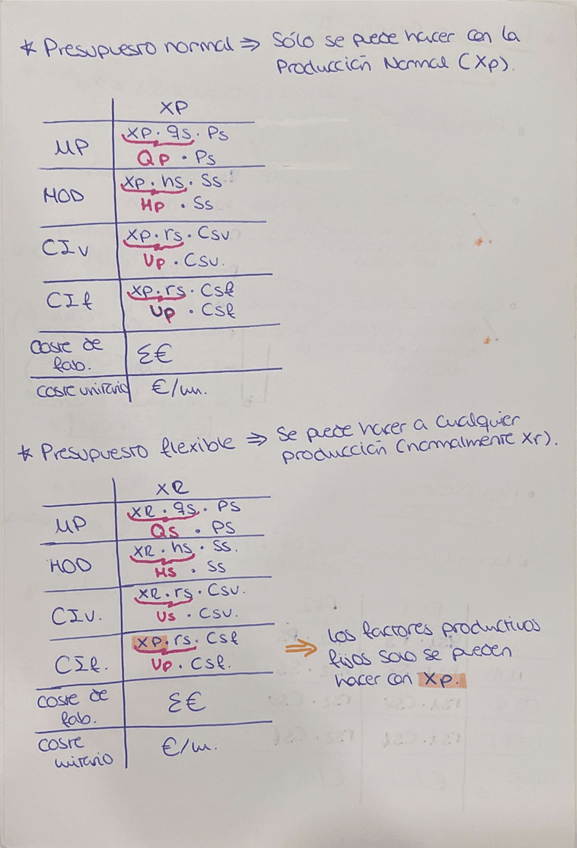 * Presupuesto normal ⇒ Sólo se puede hacer con la
Producción Normal (Xp).
XP
MP
Xp · qs · Ps
Qp · Ps
MOD
Xp · hs · Ss
Hp · Ss
CIv
Xp · rs · Csv
Up · Csv.
CIf
Xp · rs · Csf
Up · Csf
Coste de
fab.
Σ€
Coste unitario
€/un.
* Presupuesto flexible ⇒ Se puede hacer a cualquier
producción (normalmente Xr).
XR
MP
XR · qs · PS
Qs · PS
MOD
XR · hs · Ss.
Hs · Ss
CIv.
XR · rs · Csv.
Us · Csv.
CIf.
Xp · rs · Csf
Up · Csf.
⇒ Los factores productivos
fijos solo se pueden
hacer con Xp.
Coste de
fab.
Σ€
Coste
unitario
€/u.